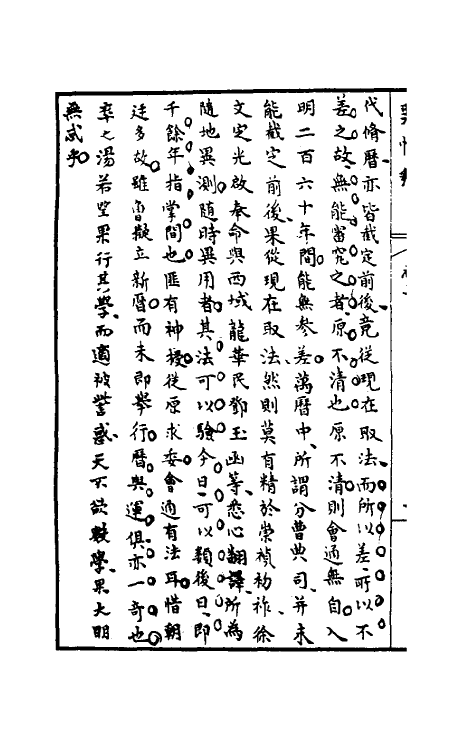 代脩曆亦皆截定前後竟從現在取法而所以差所以不
差之故無能審究之者原不清也原不清則會通無自入
明二百六十年間能無參差萬曆中所謂分曹典司并未
能截定前後果從現在取法然則莫有精於崇禎初祚徐
文定光啟奉命與西域龍華民鄧玉函等悉心翻譯所為
隨地異測隨時異用者其法可以驗今日可以類後日即
千餘年指掌間也匪有神授從原求委會通有法耳惜朝
廷多故雖曾擬立新曆而未即舉行曆與運俱亦一奇也
率之湯若望果行其學而適被讐惑天不欲數學果大明
無惑乎